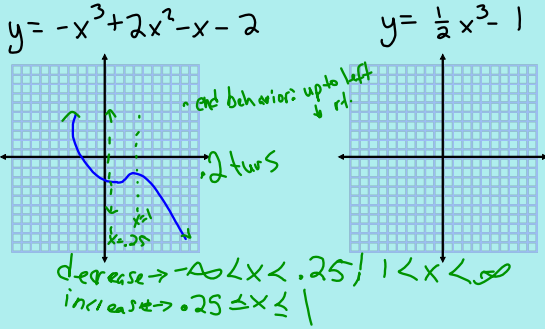 y = -x³ + 2x² - x - 2
y = ½ x³ - 1
• end behavior: up to left
↓ rt.
• 2 turs
x=1
x=.25
decrease → -∞ < x < .25 / 1 < x < ∞
increase → .25 ≤ x ≤ 1